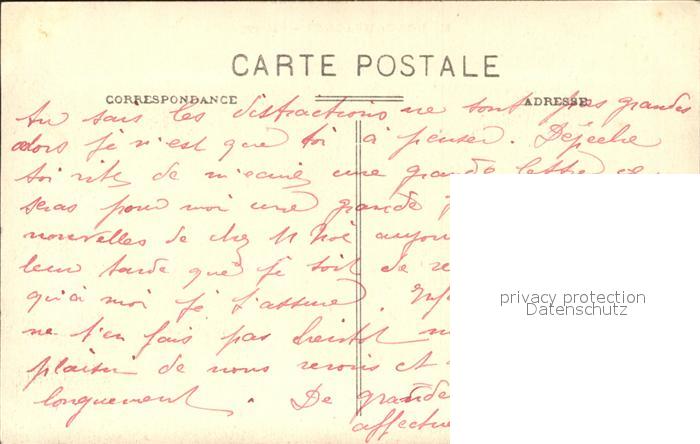 CARTE POSTALE
CORRESPONDANCE
ADRESSE
tu sais les distractions ne sont pas grandes
alors je n'est que toi à penser. Dépeche
toi vite de m'ecrire une grande lettre ce
seras pour moi une grande
nouvelles de chez M Noé aujour
leur tarde que je soit de re
qu'à moi je t'assure. Enf
ne t'en fais pas bientot
plaisir de nous revoir et
longuement. De grande
affectue
privacy protection
Datenschutz